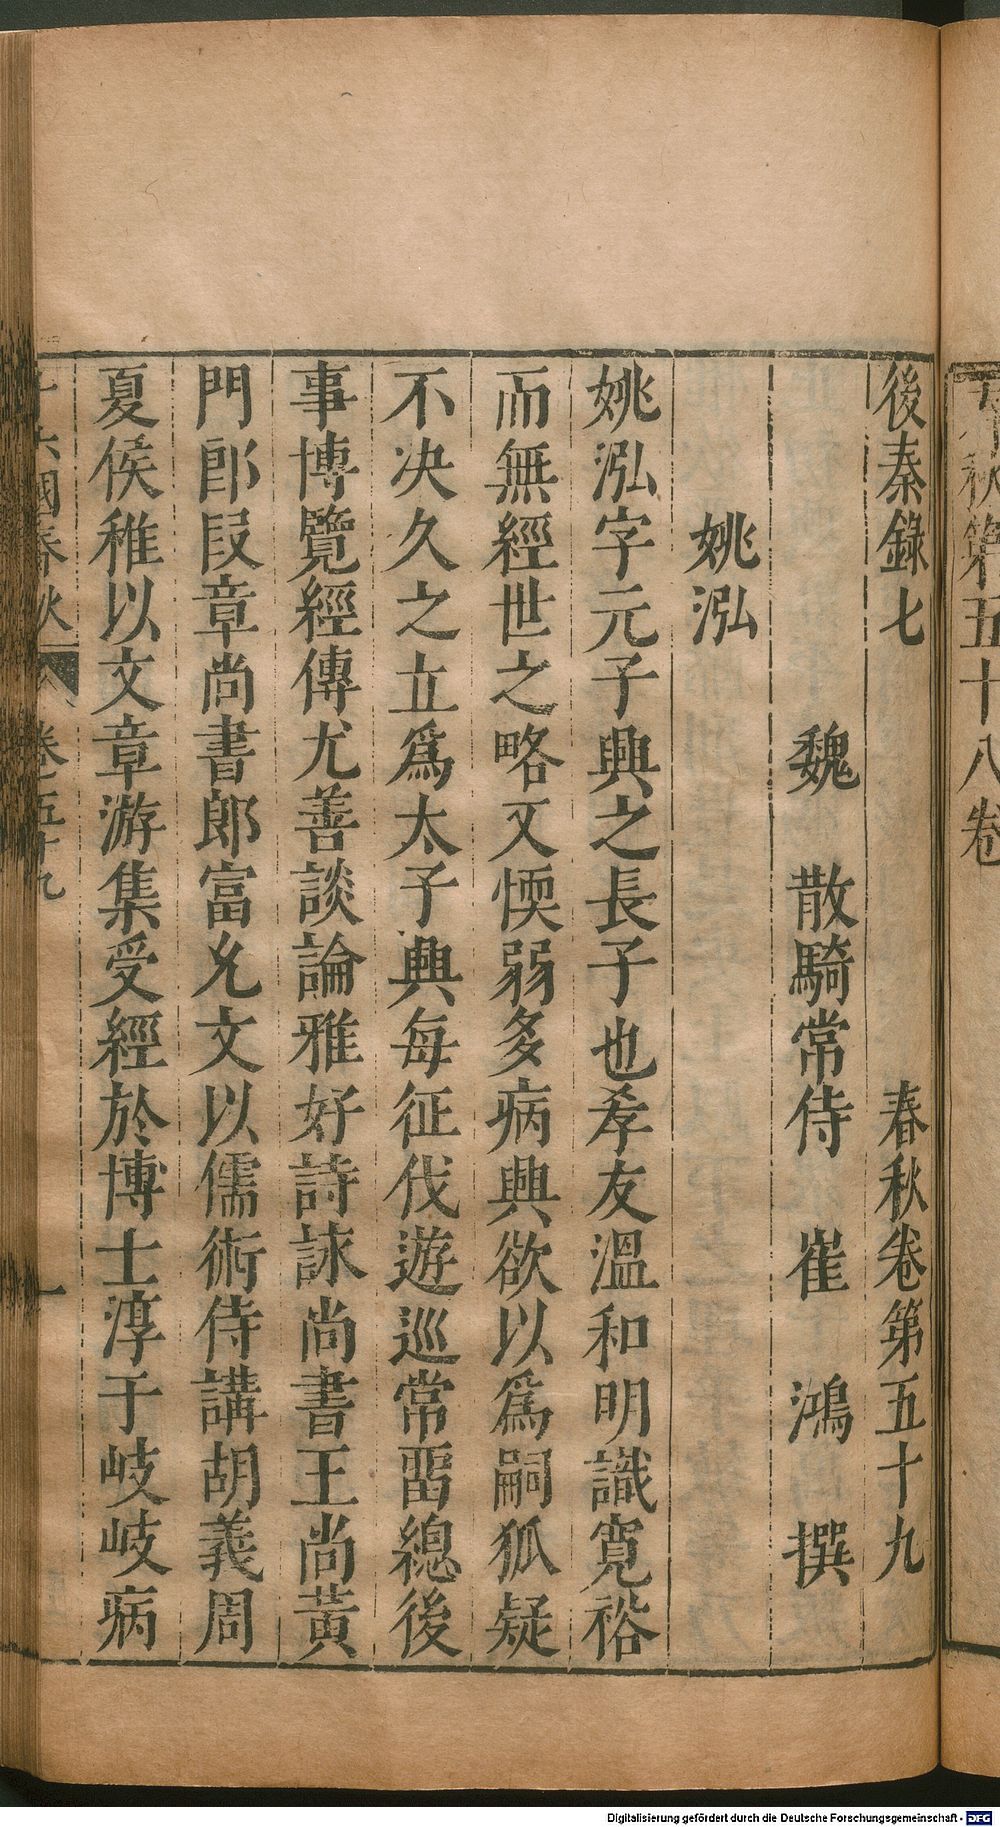 春秋第五十八卷
後秦錄七 春秋卷第五十九
魏 散騎常侍 崔 鴻 撰
姚泓
姚泓字元子興之長子也孝友溫和明識寬裕
而無經世之略又愞弱多病興欲以爲嗣狐疑
不決久之立爲太子興每征伐遊巡常畱總後
事博覽經傳尤善談論雅好詩詠尚書王尚黃
門郎段章尚書郎富允文以儒術侍講胡義周
夏侯稚以文章游集受經於博士淳于岐岐病
十六國春秋 卷五十九 一
Digitalisierung gefördert durch die Deutsche Forschungsgemeinschaft - DFG